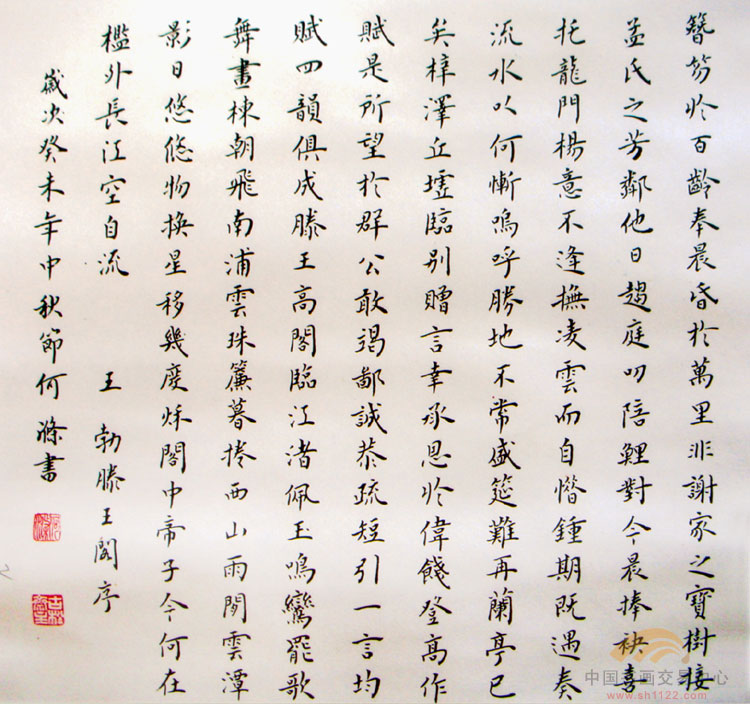 簪笏於百齡奉晨昏於萬里非謝家之寶樹接
孟氏之芳鄰他日趨庭叨陪鯉對今晨捧袂喜
托龍門楊意不逢撫凌雲而自惜鍾期既遇奏
流水以何慚嗚呼勝地不常盛筵難再蘭亭已
矣梓澤丘墟臨別贈言幸承恩於偉餞登高作
賦是所望於群公敢竭鄙誠恭疏短引一言均
賦四韻俱成滕王高閣臨江渚佩玉鳴鸞罷歌
舞畫棟朝飛南浦雲珠簾暮捲西山雨閒雲潭
影日悠悠物換星移幾度秋閣中帝子今何在
檻外長江空自流 王勃滕王閣序
歲次癸未年中秋節何滌書
中国书画交易中心
www.sh1122.com